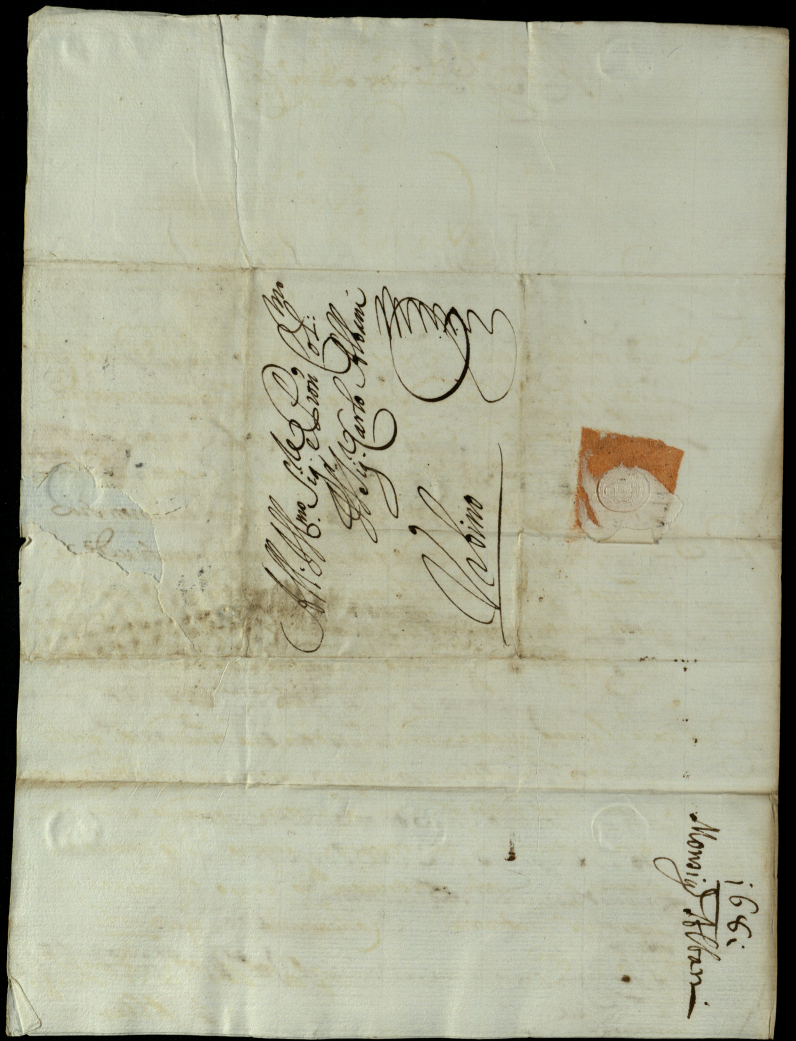 All' Ill.mo Sig.re e P.ron Col.mo
Il Sig. Carlo Albani
Urbino
1691
Monsig.r Albani